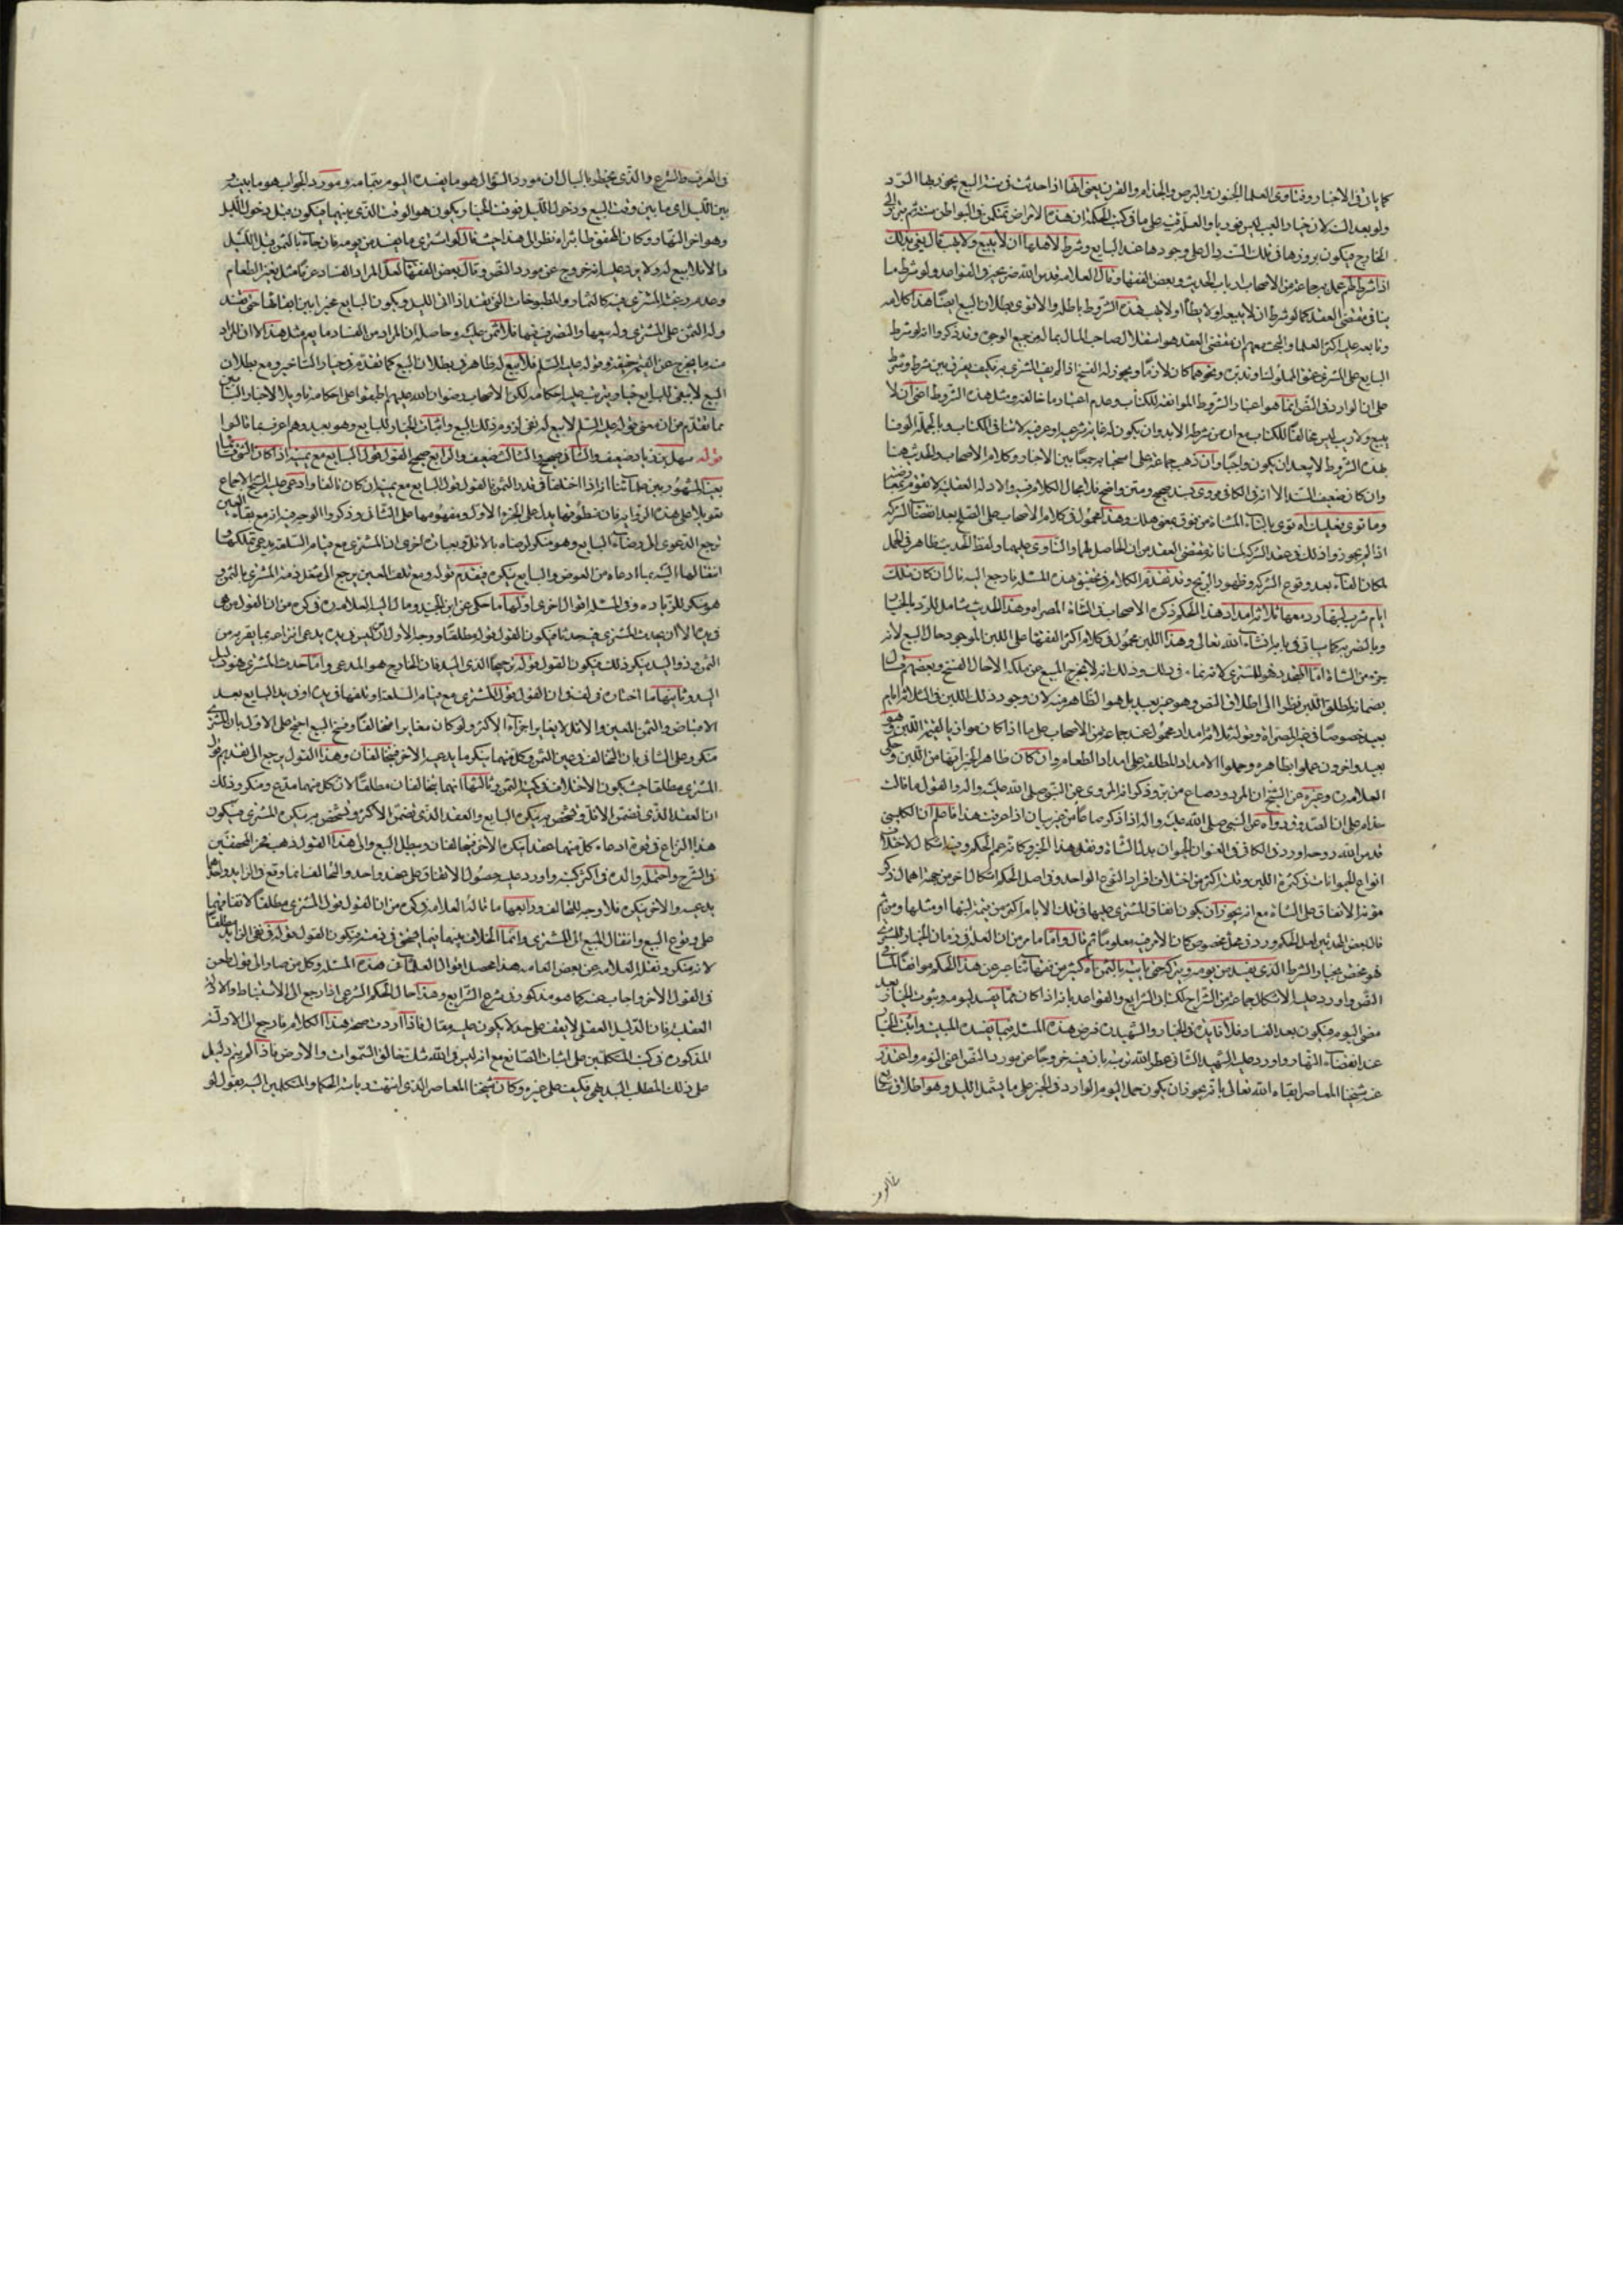 كما بان في الاخبار وفتاوى العلما الجنون والبرص والجذام والقرن يعني انها اذا حدثت في سنة البيع يجوز بها الرد
ولو بعد السنة لان خيار العيب ليس فوريا والعلة فيه على ما في كتب الحكمة ان هذه الامراض تتكون في البواطن سنة ثم تبرز الى
الخارج فيكون بروزها في تلك السنة دالا على وجودها عند البايع وشرط لاهلها ان لا يبيع ولا يهب قال يفي بذلك
اذا شرط لهم عمل به جماعة من الاصحاب ارباب الحديث وبعض الفقها وقال العلامه قدس الله ضريحه في القواعد ولو شرط ما
ينافي مقتضى العقد كما لو شرط ان لا يبيعه او لا يطأ او لا يهب هذه الشروط باطله والاقوى بطلان البيع ايضا هذا كلامه
وتابعه عليه اكثر العلما والحجة معهم ان مقتضى العقد هو استقلال صاحب المال بماله من جميع الوجوه وقد ذكروا انه لو شرط
البايع على المشتري عتق المملوك او تدبيره ونحوهما كان لازما ويجوز له الفسخ اذا لم يف المشتري به فكيف يفرق بين شرط وشرط
على ان الوارد في النص انما هو اعتبار الشروط الموافقه للكتاب وعدم اعتبار ما خالفه ومثل هذه الشروط اعني ان لا
يبيع ولا يهب ليس مخالفا للكتاب مع ان من شرطه لابد وان يكون له غاية شرعيه او عرفيه لا تنافي الكتاب وبالجمله الوفا
بهذه الشروط لا يبعد ان يكون واجبا وان ذهب جماعة على استحبابه جمعا بين الاخبار وكلام الاصحاب والحديث هنا
وان كان ضعيف السند الا انه في الكافي مروي بسند صحيح ومتن واضح فلا مجال للكلام فيه والادلة العقلية لا تقوم بمعارضته
وما توى فعليك اه توى بالتاء المثناة من فوق بمعنى هلك وهذا محمول في كلام الاصحاب على الصلح بعد انقضاء الشركه
اذا لم يجوزوا ذلك في عقد الشركه لمنافاته مقتضى العقد من ان الحاصل لهما والتاوي عليهما ولفظ الحديث ظاهر في الحمل
لمكان الفاء بعد وقوع الشركه وظهور الربح وقد تقدم الكلام في تحقيق هذه المسئله فارجع اليه قال ان كان تلك
ايام شرب لبنها رد معها ثلاثة امداد هذا الحكم ذكره الاصحاب في الشاة المصراه وهذا الحديث شامل للرد بالخيار
وبالتصريه كما سياتي في بابه ان شاء الله تعالى وهذا اللبن محمول في كلام اكثر الفقها على اللبن الموجود حال البيع لانه
جزء من الشاة اما المتجدد فهو للمشتري لانه نماء في ذلك وذلك انه لا يخرج المبيع عن ملكه الا حال الفسخ وبعضهم قال
بضمان مطلق اللبن نظرا الى اطلاق النص وهو غير بعيد بل هو الظاهر منه لان وجود ذلك اللبن في الثلاثة ايام
بعيد خصوصا في غير المصراة وقوله ثلاثة امداد محمول عند جماعة من الاصحاب على ما اذا كان موافقا لقيمة اللبن وهو
بعيد واخرون عملوا بظاهره وحملوا الامداد المطلقة على امداد الطعام وان كان ظاهر الخبر انها من اللبن وحكى
العلامة ره وغيره عن الشيخ ان المردود صاع من بر وذكر انه المروي عن النبي صلى الله عليه واله والقول بما قالت
حذام على ان الصدوق رواه عن النبي صلى الله عليه واله اذا ذكر صاعا من تمر بيان اذا عرفت هذا فاعلم ان الكليني
قدس الله روحه اورد في الكافي في العنوان الحيوان بدل الشاة ونقل هذا الخبر وكانه عم الحكم وفيه اشكال لاختلاف
انواع الحيوانات في كثرة اللبن وقلته اكثر من اختلاف افراد النوع الواحد وفي اصل الحكم اشكال اخر من جهة اهمال ذكر
مؤنة الانفاق على الشاة مع انه يجوز ان يكون انفاق المشتري عليها في تلك الايام اكثر من قيمة لبنها او مثلها ومن ثم
قال بعض المحدثين لعل الحكم ورد في محل مخصوص كان الامر فيه معلوما ثم قال واما ما مر من ان الغلة في زمان الخيار للمشتري
فهو مختص بخيار الشرط الذي يفسد من يومه ويتركه حتى ياتيه بالثمن اه كثير من فقهائنا عبر عن هذا الحكم موافقا لمتن
النص واورد عليه الاشكال جماعة من الشراح لكن ان الشرايع والقواعد بانه اذا كان مما يفسد ليومه وثبوت الخيار بعد
مضي اليوم فيكون بعد الفساد فلا فايدة في الخيار والشهيد ره فرض هذه المسئلة فيما يفسده المبيت واثبت الخيار
عند انقضاء النهار واورد عليه الشهيد الثاني عطر الله تربته بان فيه خروجا عن مورد النص اعني اليوم واعتذر
عنه شيخنا المعاصر ابقاه الله تعالى بانه يجوز ان يكون حمل اليوم الوارد في الخبر على ما يشمل الليل وهو اطلاق شايع
في العرف والشرع والذي يخطر بالبال ان مورد السؤال هو ما يفسده اليوم بتمامه ومورد الجواب هو ما بينه و
بين الليل اي ما بين وقت البيع ودخول الليل فوقت الخيار يكون هو الوقت الذي بينهما فيكون قبل دخول الليل
وهو اخر النهار وكان المحقق طاب ثراه نظر الى هذا حيث قال لو اشترى ما يفسد من يومه فان جاء بالثمن قبل الليل
والا فلا بيع له ولا يرد عليه انه خروج عن مورد النص وقال بعض الفقها لعل المراد الفساد عرفا مثل تغير الطعام
وعدم رغبة المشتري فيه كالثمار والمطبوخات التي تفسد اذا اتى الليل ويكون البايع مخيرا بين ابقائها حتى تفسد
وله الثمن على المشتري وله بيعها والتصرف فيها فلا ثمن عليه وحاصله ان المراد من الفساد ما يعم مثل هذا لا ان المراد
منه ما يخرج عن القيمة حقيقة وقوله عليه السلم فلا بيع له ظاهر في بطلان البيع كما تقدم في خيار التاخير ومع بطلان
البيع لا يبقى للبايع خيار ويترتب عليه احكامه لكن الاصحاب رضوان الله عليهم اطبقوا على احكامه تاويلا لاخبار التاخير
بما تقدم من ان معنى قوله عليه السلم لا بيع له نفي لزومه وذلك البيع واثبات الخيار للبايع وهو بعيد وهم اعرف بما قالوا
قوله سهل بن زياد ضعيف والثاني صحيح والثالث ضعيف والرابع صحيح القول قول البايع مع يمينه اذا كان الثوب قائما
بعينه المشهور بين علمائنا انه اذا اختلفا في قدر الثمن فالقول قول البايع مع يمينه ان كان تالفا وادعى عليه الشيخ الاجماع
تعويلا على هذه الرواية فان منطوقها يدل على الجزء الاول ومفهومها على الثاني وذكروا الوجه فيه انه مع بقاء العين
ترجع الدعوى الى رضاء البايع وهو منكر لرضاه بالاقل وبعبارة اخرى ان المشتري مع قيام السلعة يدعي تملكها
انتقالها اليه بما ادعاه من العوض والبايع ينكره فيقدم قوله ومع تلف العين يرجع الى شغل ذمة المشتري بالثمن و
هو منكر للزياده وفي المسئله اقوال اخرى اولها ما حكي عن ابن الجنيد ومال اليه العلامة ره في كره من ان القول من هي
في يده الا ان يحدث المشتري فيه حدثا فيكون القول قوله مطلقا ووجه الاول ان من ليس في يده يدعي انتزاعه بما يقر به من
الثمن وذو اليد ينكر ذلك فيكون القول قوله ترجيحا لذي اليد فان الخارج هو المدعي واما حدث المشتري فهو دليل
اليد وثانيها ما اختاره في لف من ان القول قول المشتري مع قيام السلعة او تلفها في يده او في يد البايع بعد
الاقباض والثمن المعين والاقل لا يغاير اجزاء الاكثر ولو كان مغايرا تحالفا وفسخ البيع احتج على الاول بان المشتري
منكر وعلى الثاني بان التخالف في عين الثمن وكل منهما ينكر ما يدعيه الاخر فيتحالفان وهذا القول يرجع الى تقديم قول
المشتري مطلقا حيث يكون الاختلاف في كمية الثمن وثالثها انهما يتحالفان مطلقا لان كلا منهما مدع ومنكر وذلك
ان العقد الذي تضمن الاقل وتشخص به ينكره البايع والعقد الذي تضمن الاكثر وتشخص به ينكره المشتري فيكون
هذا النزاع في قوة ادعاء كل منهما عقدا ينكره الاخر فيتحالفان ويبطل البيع والى هذا القول ذهب فخر المحققين
في الشرح واحتمله والده في اكثر كتبه واورد عليه حصول الاتفاق على عقد واحد والتخالف انما وقع في الزايد واحدهما
يدعيه والاخر ينكره فلا وجه للتحالف ورابعها ما قاله العلامة في كره من ان القول قول المشتري مطلقا لاتفاقهما
على وقوع البيع وانتقال المبيع الى المشتري وانما الخلاف بينهما فيما يستحق في ذمته فيكون القول قوله في نفي الزايد مطلقا
لانه منكر ونقل العلامة عن بعض العامه هذا محصل اقوال العلماء في هذه المسئله وكل من صار الى قول طعن
في القول الاخر واجاب عنه كما هو مذكور في شرح الشرايع وهذا حال الحكم الشرعي اذا رجع الى الاستنباط والادلة
العقلية فان الدليل العقلي لا يقف على حد لا يكون عليه مقال فاذا اردت صحة هذا الكلام فارجع الى الادلة
المذكورة في كتب المتكلمين على اثبات الصانع مع انه ليس في الله شك خالق السموات والارض فاذا لم يتم دليل
على ذلك المطلب البديهي فكيف على غيره وكان شيخنا المعاصر الذي انتهت رياسة الحكما والمتكلمين اليه يقول لو